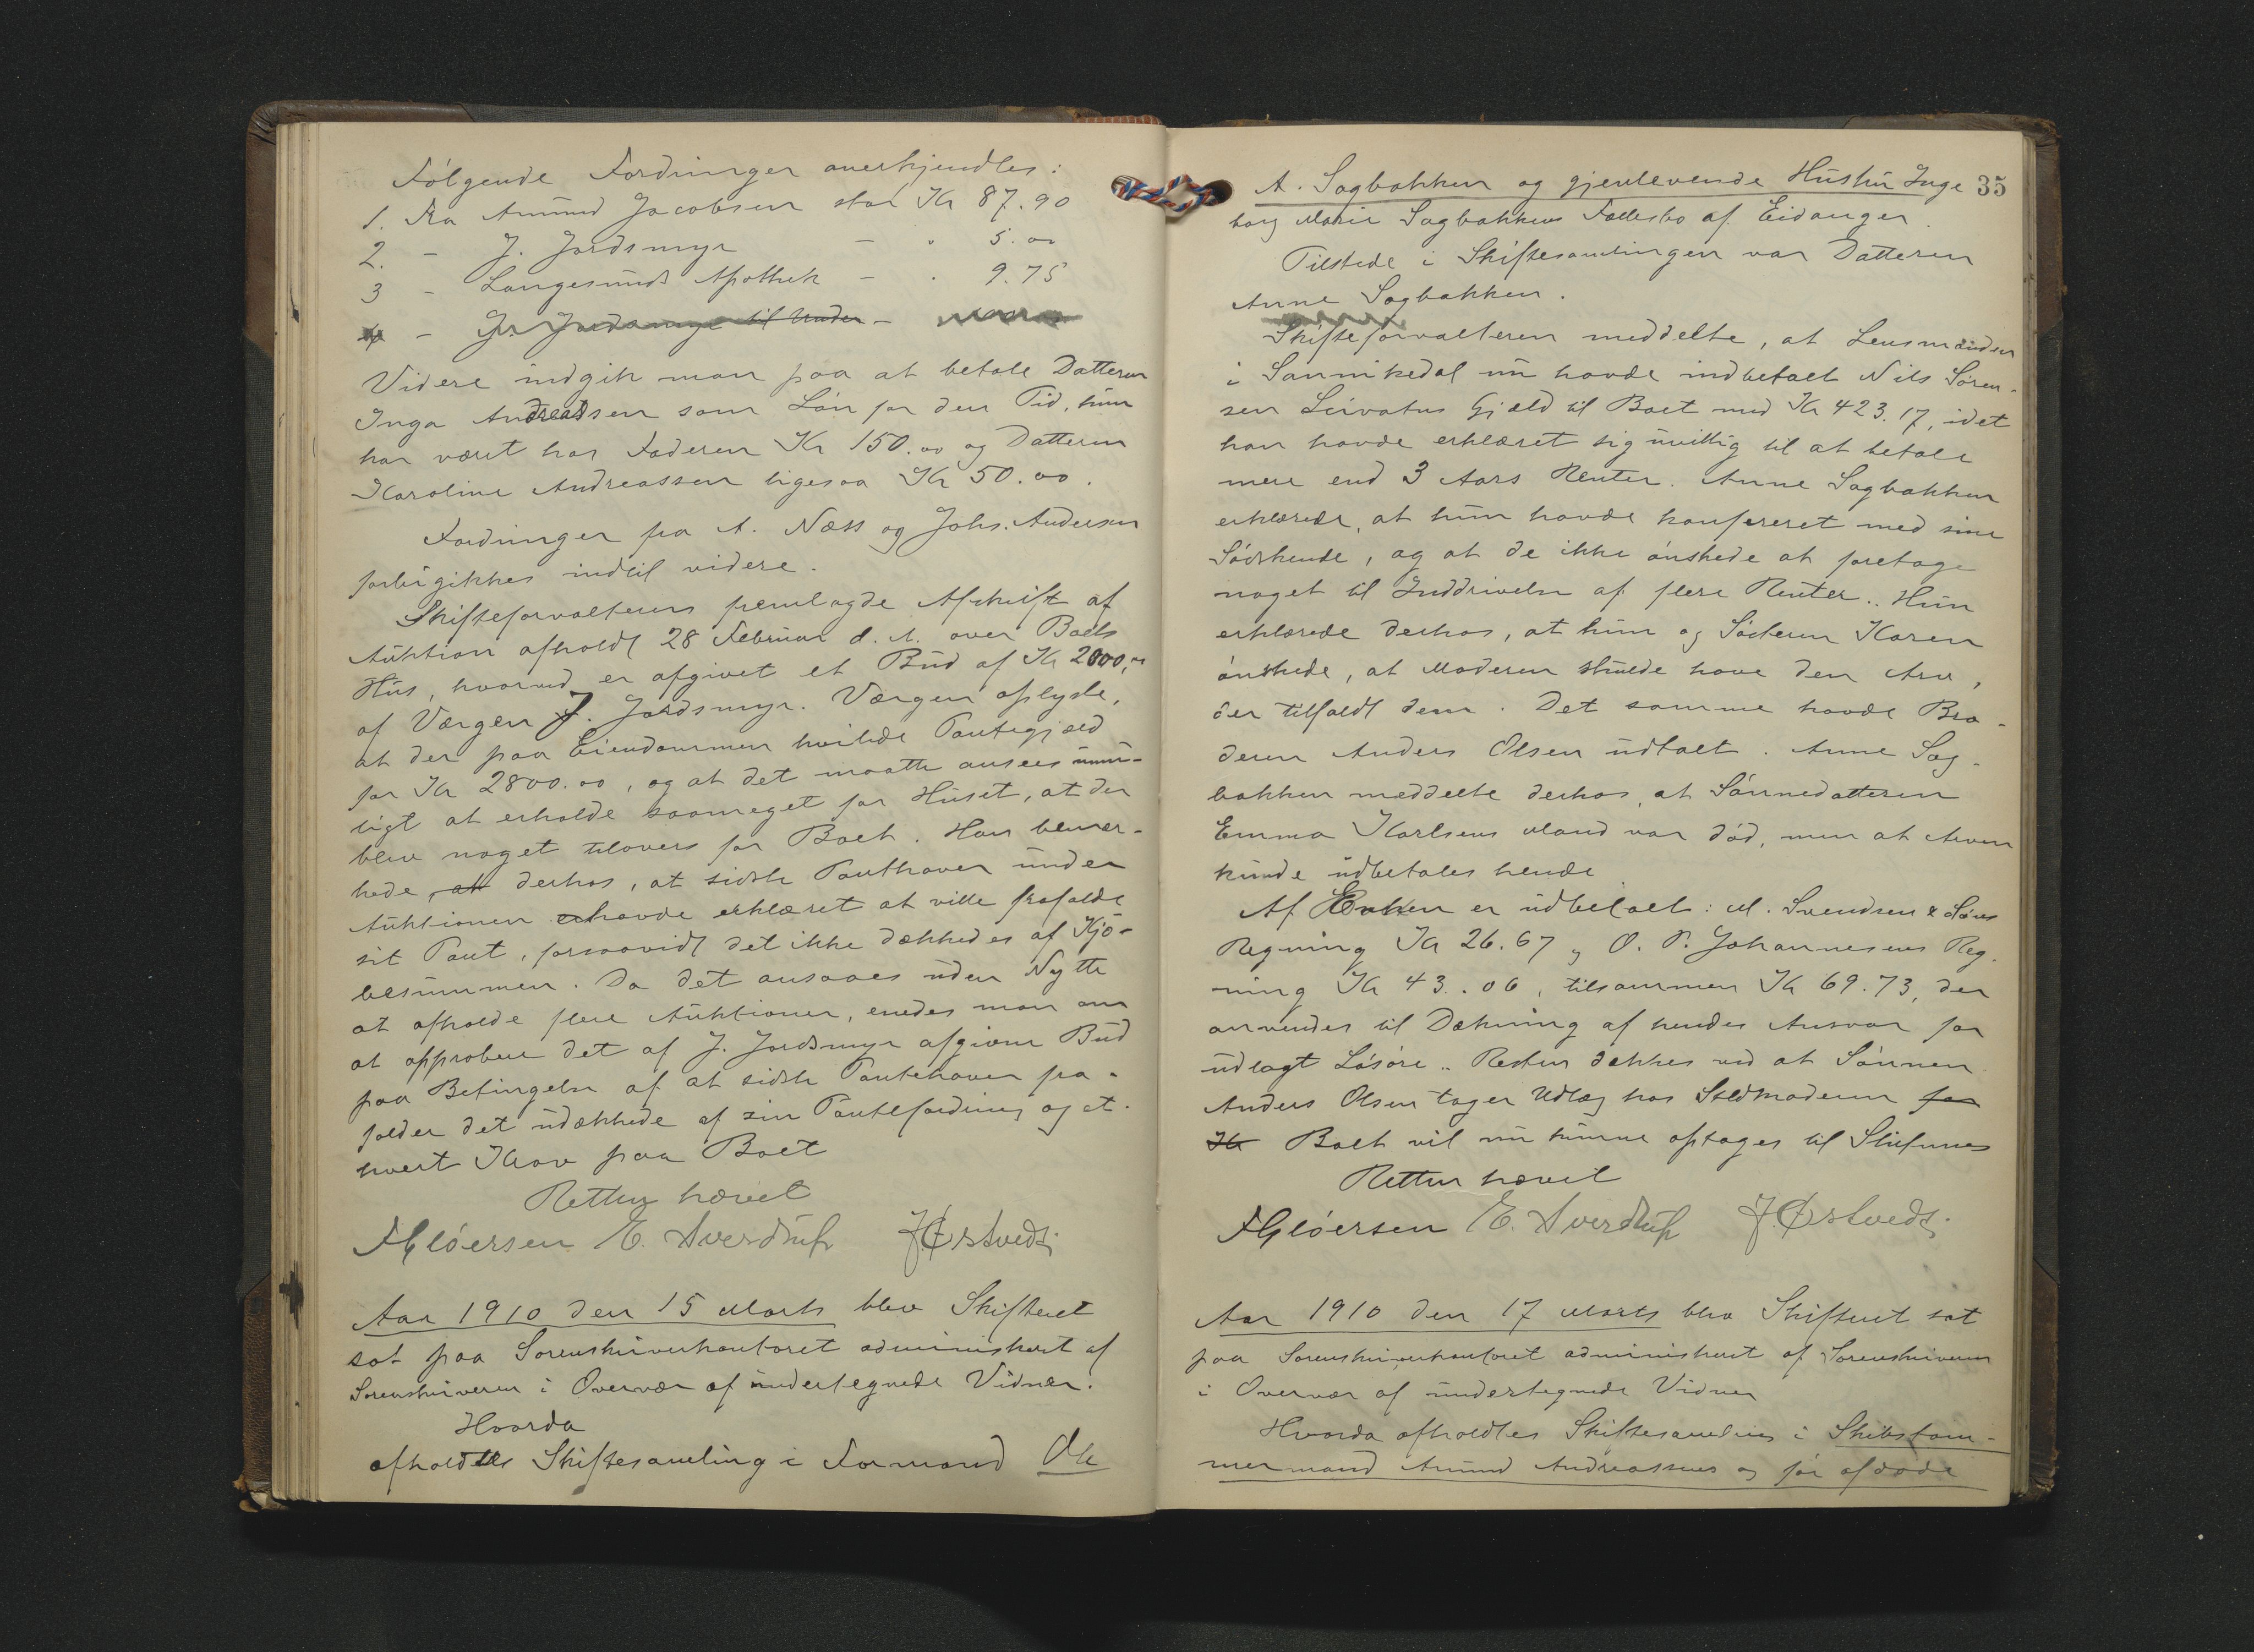 Følgende Fordringer anerkjendtes:
1. Fra Amund Jacobsen stor Kr 87.90
2. - J. Jordsmyr - " 5.00
3 - Langesunds Apothek - " 9.75
4 - Jordsmyr til Under -
Videre indgik man paa at betale Datteren
Inga Andreassen som Løn for den Tid, hun
har været hos Faderen Kr 150.00 og Datteren
Karoline Andreassen ligesaa Kr 50.00.
Fordringer fra A. Næss og Johs. Andersen
forbigikkes indtil videre.
Skifteforvalteren fremlagde Afskrift af
Auktion afholdt 28 Februar d. A. over Boets
Hus, hvorved er afgivet et Bud af Kr 2000,00
af Værgen J. Jordsmyr. Værgen oplyste,
at der paa Eiendommen hvilede Pantegjæld
for Kr 2800.00, og at det maatte ansees umu-
ligt at erholde saameget for Huset, at der
blev noget tilovers for Boet. Han bemær-
kede at derhos, at sidste Panthaver under
Auktionen havde erklæret at ville frafalde
sit Pant, forsaavidt det ikke dækkedes af Kjø-
besummen. Da det ansaaes uden Nytte
at afholde flere Auktioner, enedes man om
at approbere det af J. Jordsmyr afgivne Bud
paa Betingelse af at sidste Pantehaver fra-
falder det udækkede af sin Pantefordring og et-
hvert Krav paa Boet
Retten hævet
FGløersen E. Sverdrup J.Østvedt.
Aar 1910 den 15 Marts blev Skifteret
sat paa Sorenskriverkontoret administreret af
Sorenskriveren i Overvær af undertegnede Vidner.
Hvorda
afholdtes Skiftesamling i Formand Ole
35
A. Sagbakken og gjenlevende Hustru Inge
borg Marie Sagbakkens Fællesbo af Eidanger.
Tilstede i Skiftesamlingen var Datteren
Anne Sagbakken.
Skifteforvalteren meddelte, at Lensmanden
i Sannikedal nu havde indbetalt Nils Søren-
sen Gjæld til Boet med Kr 423.17, idet
han havde erklæret sig uvillig til at betale
mere end 3 Aars Renter. Anne Sagbakken
erklærede, at hun havde konfereret med sine
Sødskende, og at de ikke ønskede at foretage
noget til Inddrivelse af flere Renter. Hun
erklærede derhos, at hun og Søsteren Karen
ønskede, at Moderen skulde have den Arv,
der tilfaldt dem. Det samme havde Bro-
deren Anders Olsen udtalt. Anne Sag-
bakken meddelte derhos, at Sønnedatteren
Emma Karlsens Mand var død, men at Arven
kunde udbetales hende
Af Enken er udbetalt: M. Svendsen & Søns
Regning Kr 26.67 og O. P. Johannesens Reg-
ning Kr 43.06, tilsammen Kr 69.73, der
anvendes til Dækning af hendes Ansvar for
udlagt Løsøre. Resten dækkes ved at Sønnen
Anders Olsen tager Udlæg hos Stedmoderen for
Kr Boet vil nu kunne optages til Slutning
Retten hævet
FGløersen E. Sverdrup J.Østvedt.
Aar 1910 den 17 Marts blev Skifteret sat
paa Sorenskriverkontoret administreret af Sorenskriveren
i Overvær af undertegnede Vidner
Hvorda afholdtes Skiftesamling i Skibstøm-
mermand Amund Andreassens og før afdøde